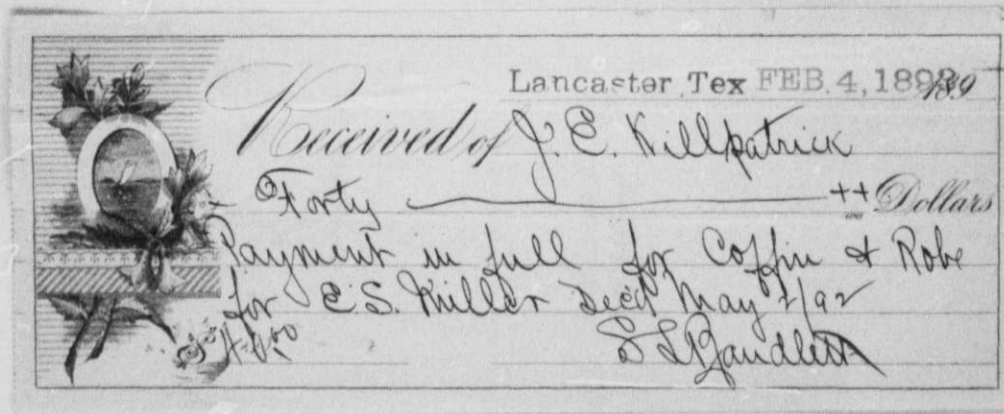 Lancaster Tex FEB. 4, 1893 189
Received of J. E. Killpatrick
Forty ++ Dollars
Payment in full for Coffin & Robe
for E. S. Miller Decd May 2/92
$40.00 S L Randlett